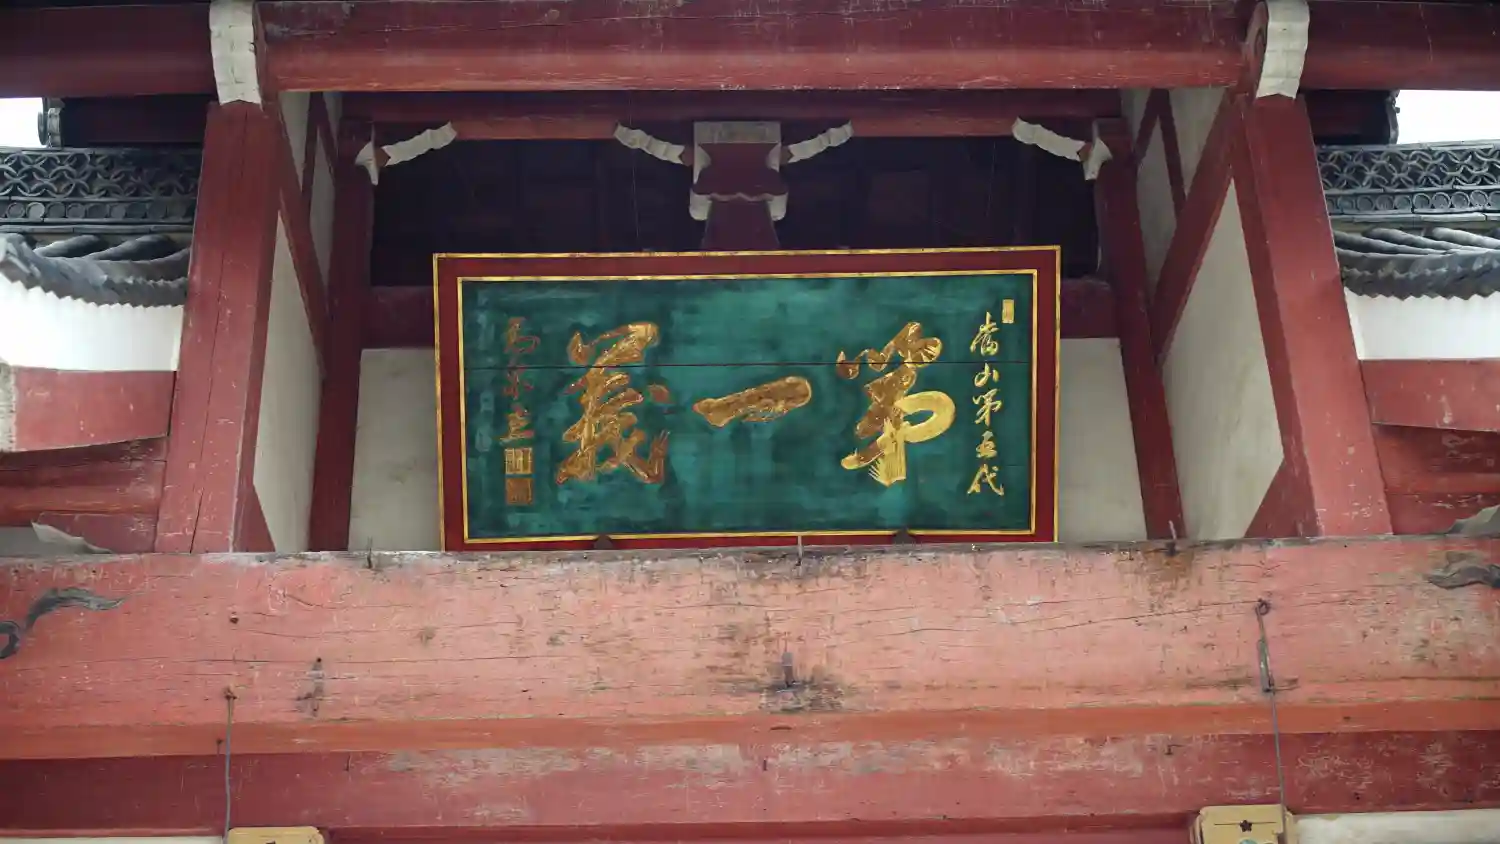 當山第五代
第一義
高泉